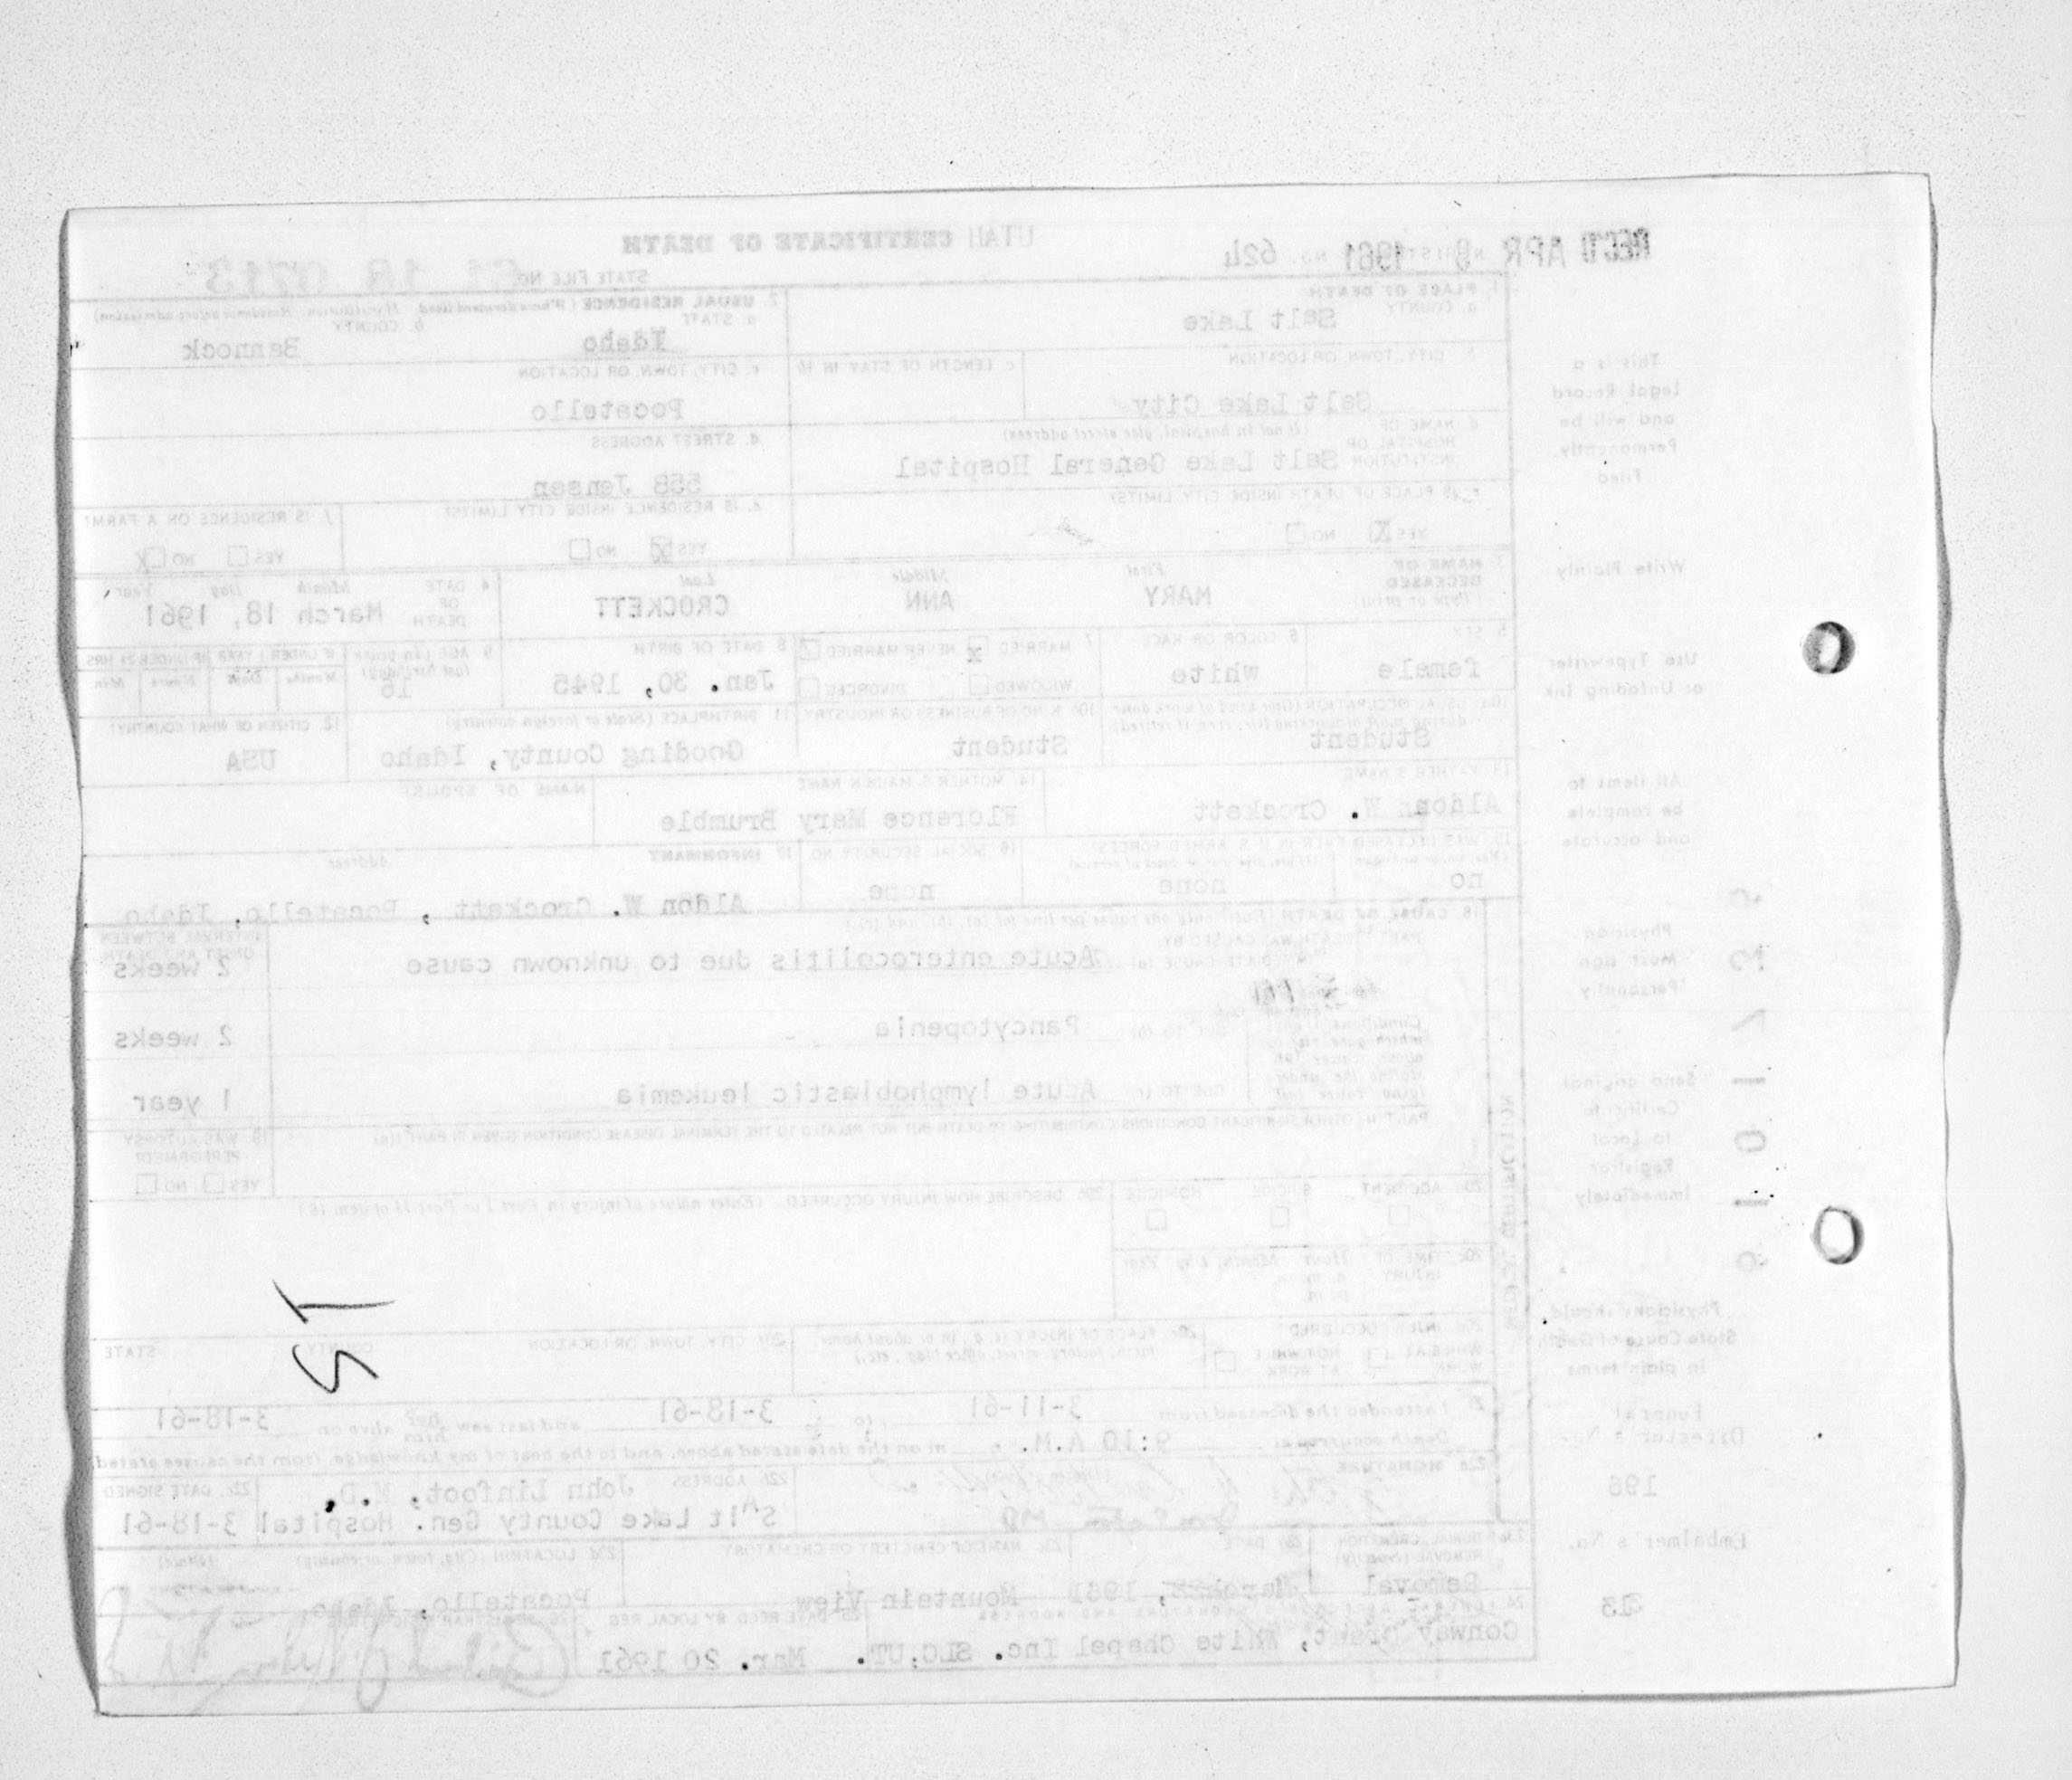 REC'D APR 8 1961 624
UTAH CERTIFICATE OF DEATH
STATE FILE NO. 61 18 0713
1. PLACE OF DEATH
a. COUNTY Salt Lake
2. USUAL RESIDENCE (Where deceased lived. If institution: Residence before admission)
a. STATE Idaho b. COUNTY Bannock
b. CITY, TOWN, OR LOCATION Salt Lake City
c. LENGTH OF STAY IN 1b
c. CITY, TOWN, OR LOCATION Pocatello
d. NAME OF HOSPITAL OR INSTITUTION (If not in hospital, give street address) Salt Lake General Hospital
d. STREET ADDRESS 558 Jensen
e. IS PLACE OF DEATH INSIDE CITY LIMITS?
YES X NO
e. IS RESIDENCE INSIDE CITY LIMITS?
YES X NO
f. IS RESIDENCE ON A FARM?
YES NO X
3. NAME OF DECEASED (Type or print) First MARY Middle ANN Last CROCKETT
4. DATE OF DEATH Month Day Year March 18, 1961
5. SEX female
6. COLOR OR RACE white
7. MARRIED NEVER MARRIED X
WIDOWED DIVORCED
8. DATE OF BIRTH Jan. 30, 1945
9. AGE (In years last birthday) 16
IF UNDER 1 YEAR Months Days
IF UNDER 24 HRS Hours Min
10a. USUAL OCCUPATION (Give kind of work done during most of working life, even if retired) Student
10b. KIND OF BUSINESS OR INDUSTRY Student
11. BIRTHPLACE (State or foreign country) Gooding County, Idaho
12. CITIZEN OF WHAT COUNTRY? USA
13. FATHER'S NAME Aldon W. Crockett
14. MOTHER'S MAIDEN NAME Florence Mary Brumble
NAME OF SPOUSE
15. WAS DECEASED EVER IN U.S. ARMED FORCES? no none
16. SOCIAL SECURITY NO. none
17. INFORMANT Address
Aldon W. Crockett, Pocatello, Idaho
18. CAUSE OF DEATH (Enter only one cause per line for (a), (b), and (c).)
PART I. DEATH WAS CAUSED BY:
IMMEDIATE CAUSE (a) Acute enterocolitis due to unknown cause
INTERVAL BETWEEN ONSET AND DEATH 2 weeks
DUE TO (b) Pancytopenia 2 weeks
DUE TO (c) Acute lymphoblastic leukemia 1 year
PART II. OTHER SIGNIFICANT CONDITIONS CONTRIBUTING TO DEATH BUT NOT RELATED TO THE TERMINAL DISEASE CONDITION GIVEN IN PART I(a)
19. WAS AUTOPSY PERFORMED?
YES NO
20a. ACCIDENT SUICIDE HOMICIDE
20b. DESCRIBE HOW INJURY OCCURRED. (Enter nature of injury in Part I or Part II of item 18.)
20c. TIME OF INJURY Hour Month, Day, Year
a. m.
p. m.
20d. INJURY OCCURRED
WHILE AT WORK NOT WHILE AT WORK
20e. PLACE OF INJURY (e.g., in or about home, farm, factory, street, office bldg., etc.)
20f. CITY, TOWN, OR LOCATION COUNTY STATE
21. I attended the deceased from 3-11-61 to 3-18-61 and last saw her him alive on 3-18-61
Death occurred at 9:10 A.M. m on the date stated above, and to the best of my knowledge, from the causes stated.
22a. SIGNATURE
22b. ADDRESS John Linfoot, M.D.
Salt Lake County Gen. Hospital
22c. DATE SIGNED 3-18-61
23a. BURIAL, CREMATION REMOVAL (Specify) Removal
23b. DATE 1961
23c. NAME OF CEMETERY OR CREMATORY Mountain View
23d. LOCATION (City, town, or county) (State) Pocatello, Idaho
White Chapel Inc. SLC, UT.
25. DATE RECD. BY LOCAL REG. Mar. 20 1961
MEDICAL CERTIFICATION
This is a
Legal Record
and will be
Permanently
Filed
Write Plainly
Use Typewriter
or Unfading Ink
All items to
be complete
and accurate
Physician
Must sign
Personally
Send original
Certificate
to Local
Registrar
Immediately
Physicians should
State Cause of Death
in plain terms
Funeral
Director's No.
196
Embalmer's No.
313